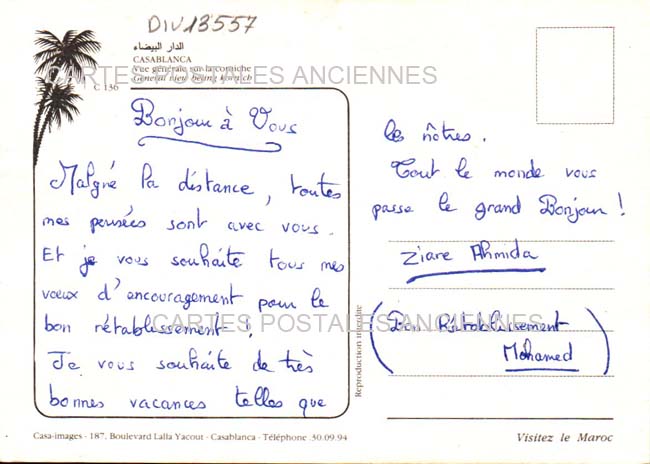 DIV13557
الدار البيضاء
CASABLANCA
Vue générale sur la corniche
C 136
CARTES POSTALES ANCIENNES
Bonjour à Vous
Malgré la distance, toutes
mes pensées sont avec vous.
Et je vous souhaite tous mes
vœux d'encouragement pour le
bon rétablissement !
Je vous souhaite de très
bonnes vacances telles que
les nôtres.
Tout le monde vous
passe le grand Bonjour !
Ziare Ahmida
(Bon Rétablissement
Mohamed)
CARTES POSTALES ANCIENNES
Reproduction interdite
Casa-images - 187, Boulevard Lalla Yacout - Casablanca - Téléphone 30.09.94
Visitez le Maroc